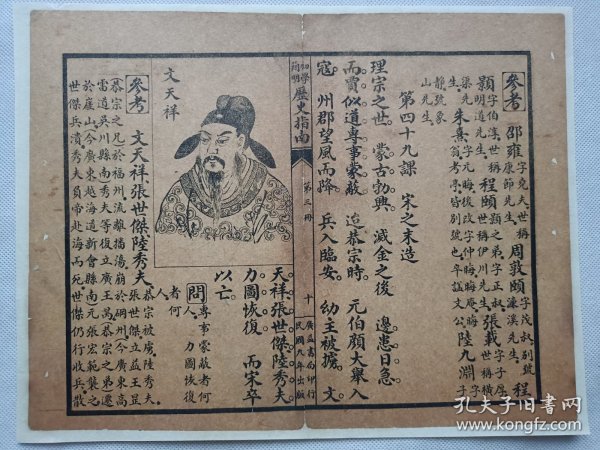 參考 邵雍 字堯夫世稱康節先生 周敦頤 字茂叔別號濂溪先生 程
顥 字伯淳世稱明道先生 程頤 顥之弟字正叔世稱伊川先生 張載 字子厚世稱橫
渠先生 朱熹 字元晦後改字仲晦晦庵晦翁考亭皆別號也卒諡文公 陸九淵 字子
靜號象山先生
第四十九課 宋之末造
理宗之世。蒙古勃興 滅金之後 邊患日急。
而賈似道專事蒙蔽 迨恭宗時。元伯顏大舉入
寇。州郡望風而降。兵入臨安。幼主被擄。文
初學簡明 歷史指南 第三冊 十
廣益書局印行
民國九年出版
天祥。張世傑。陸秀夫。
力圖恢復 而宋卒
以亡。
問 專事蒙蔽者何人 力圖恢復者何人
文天祥
參考 文天祥張世傑陸秀夫 恭宗被虜陸秀夫張世傑立益王昰
(恭宗之兄)於福州流離播蕩崩於碙州(今廣東高
雷道吳川縣南)秀夫等復立廣王昺(恭宗之弟)遷
於厓山(今廣東越海道新會縣南)元張宏範襲之
世傑兵潰秀夫負帝赴海而死世傑仍行收兵散
孔夫子旧书网
www.kongfz.com